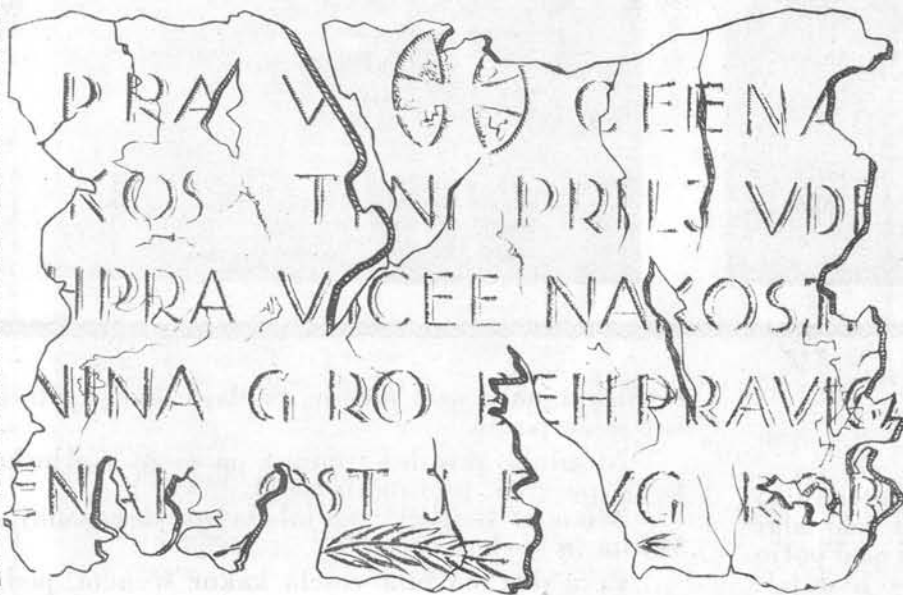 PRA V CEENA
KOS TINI PRILJ VDI
IPRA VICEE NAKOST
NINA GRO BEHPRAVIC
ENAK OSTI E VG ROB